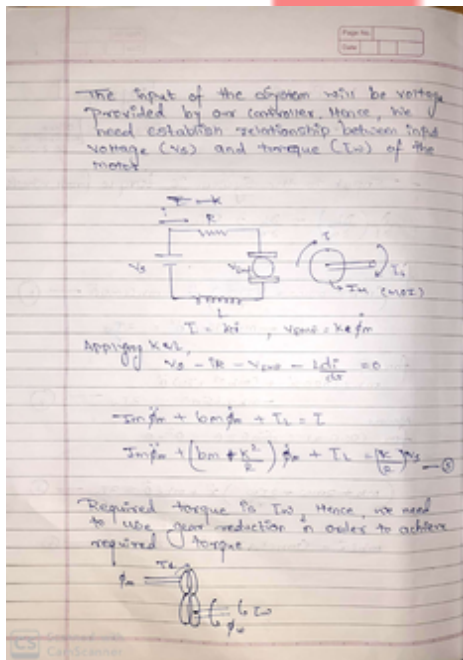 Page No.
Date
The input of the system will be voltage
provided by our controller. Hence, We
need establish relationship between input
voltage (Vs) and torque (Tw) of the
motor
i
R
Vs
Vemf
L
τ
TL
Im (MOI)
T = ki , Vemf = Ke φ̇m
Applying KVL
Vs - iR - Vemf - L di/dt = 0
Jmφ̈m + bmφ̇m + TL = T
Jmφ̈m + (bm + k²/R) φ̇m + TL = (k/R) Vs
Required torque is Tw, Hence, we need
to use gear reduction in order to achieve
required torque.
TL
φm
Tw
φw
CS Scanned with
CamScanner